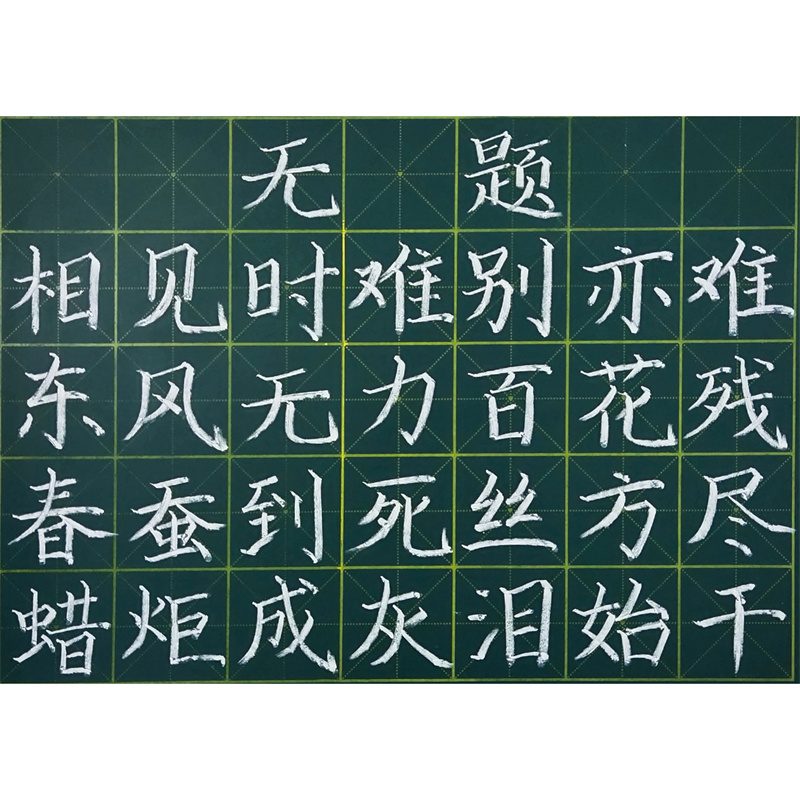 无题
相见时难别亦难
东风无力百花残
春蚕到死丝方尽
蜡炬成灰泪始干